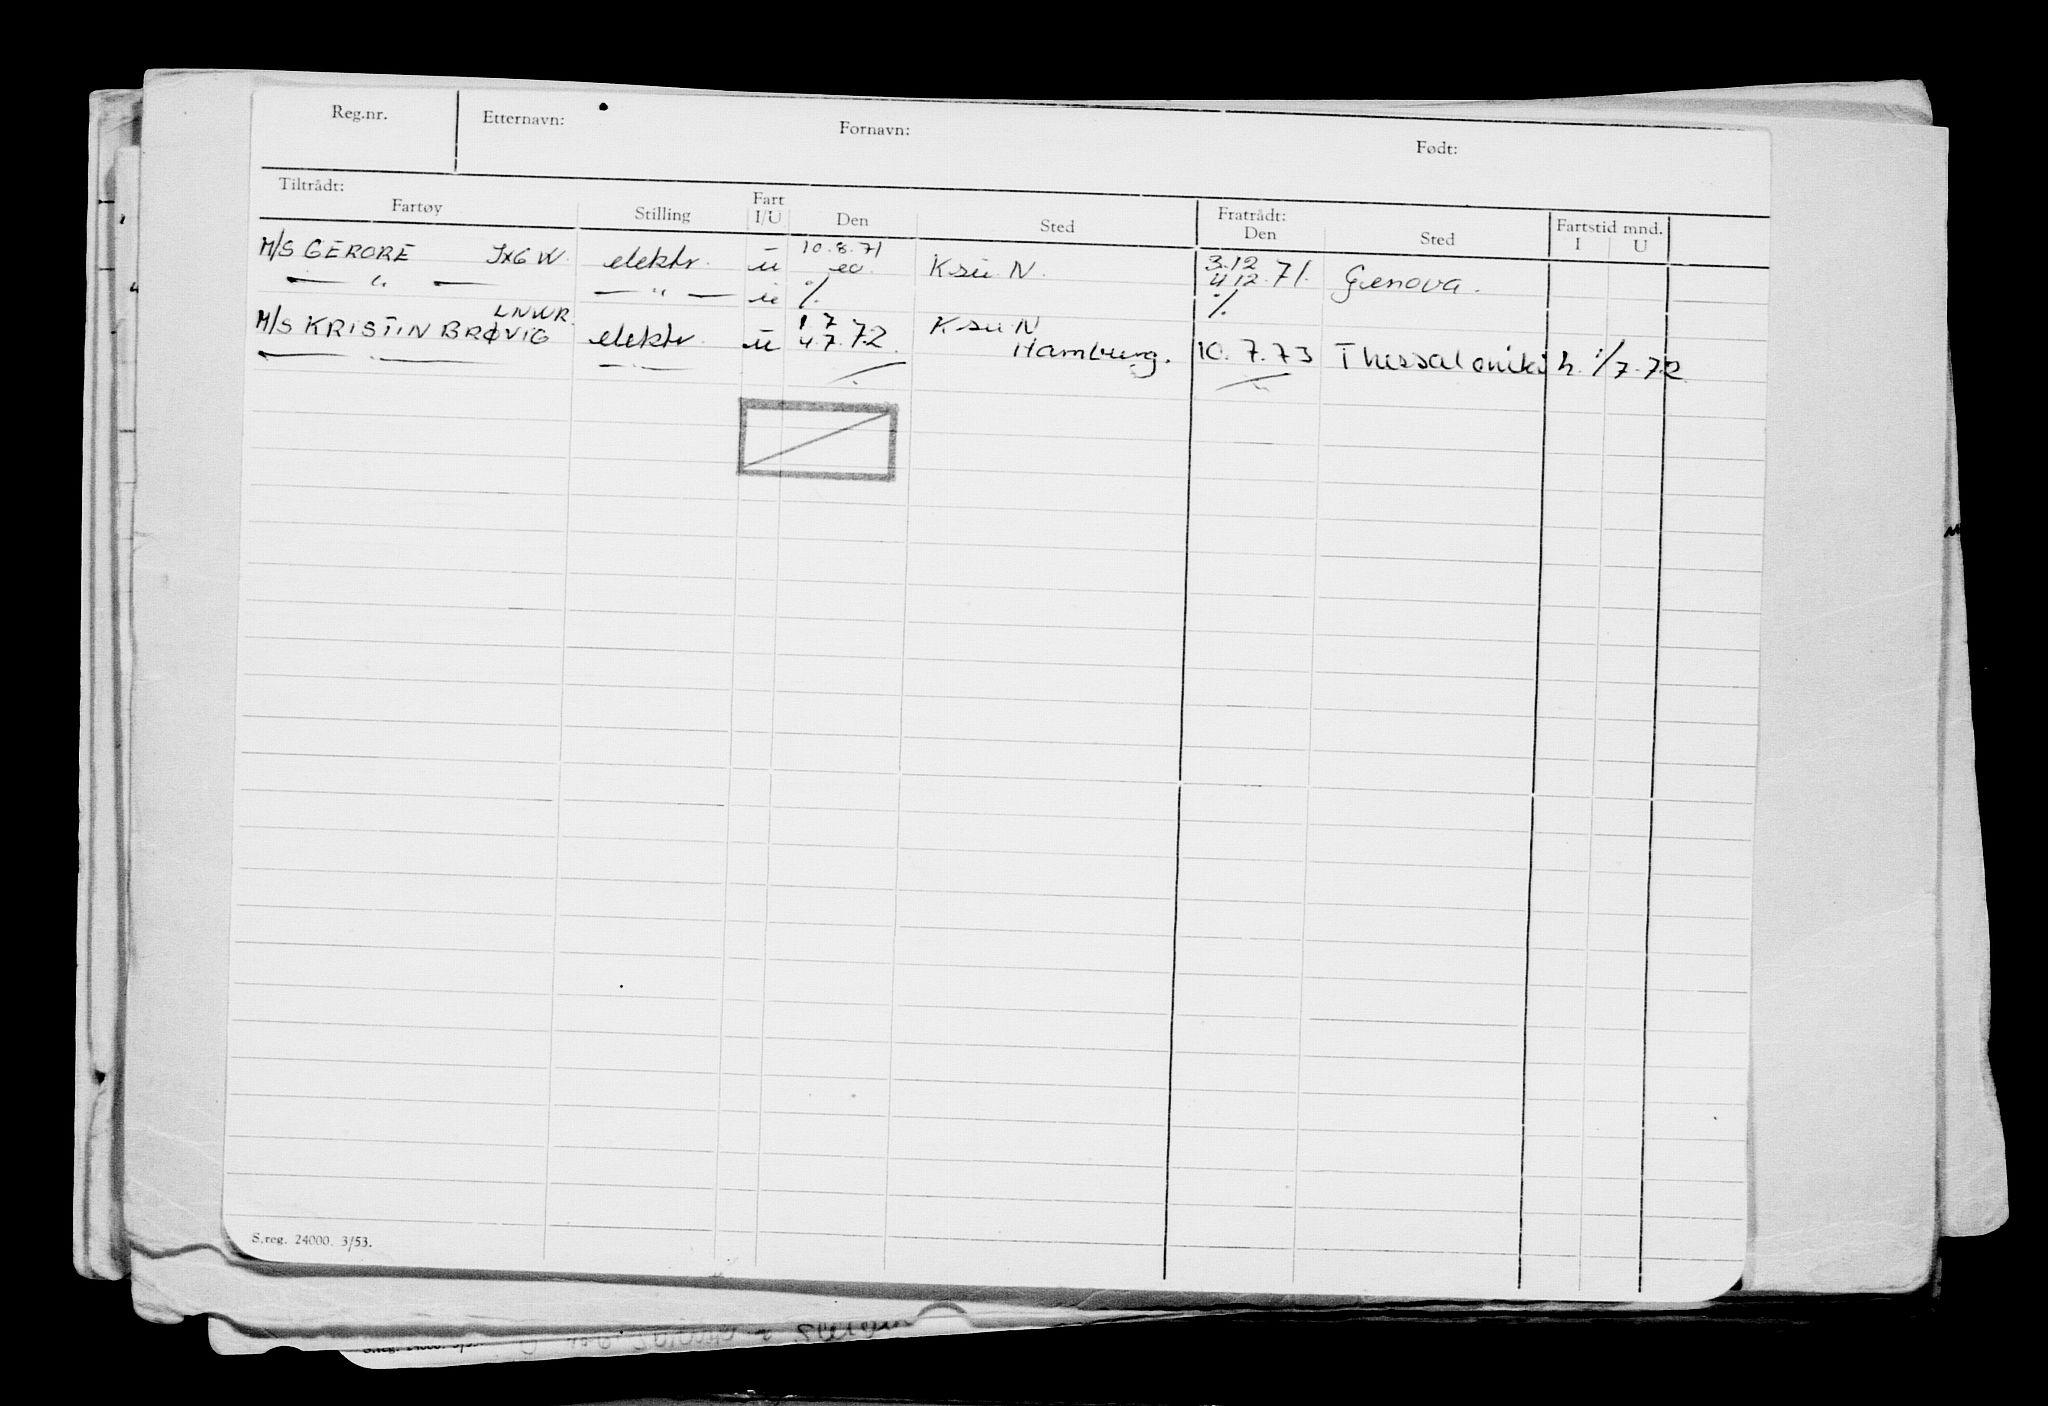 Reg.nr. Etternavn: Fornavn: Født:
Tiltrådt: Fart Fratrådt: Fartstid mnd.
Fartøy Stilling I/U Den Sted Den Sted I U
M/S GERORE JXGW. elektr. u 10.8.71 K.su N. 3.12 4 12.71. Genova.
— " — — " — u % %
LNWR.
M/S KRISTIN BRØVIG elektr. u 1 7 4.7.72. K su N Hamburg. 10.7.73 Thessaloniki h. 1/7.72
S.reg. 24000. 3/53.